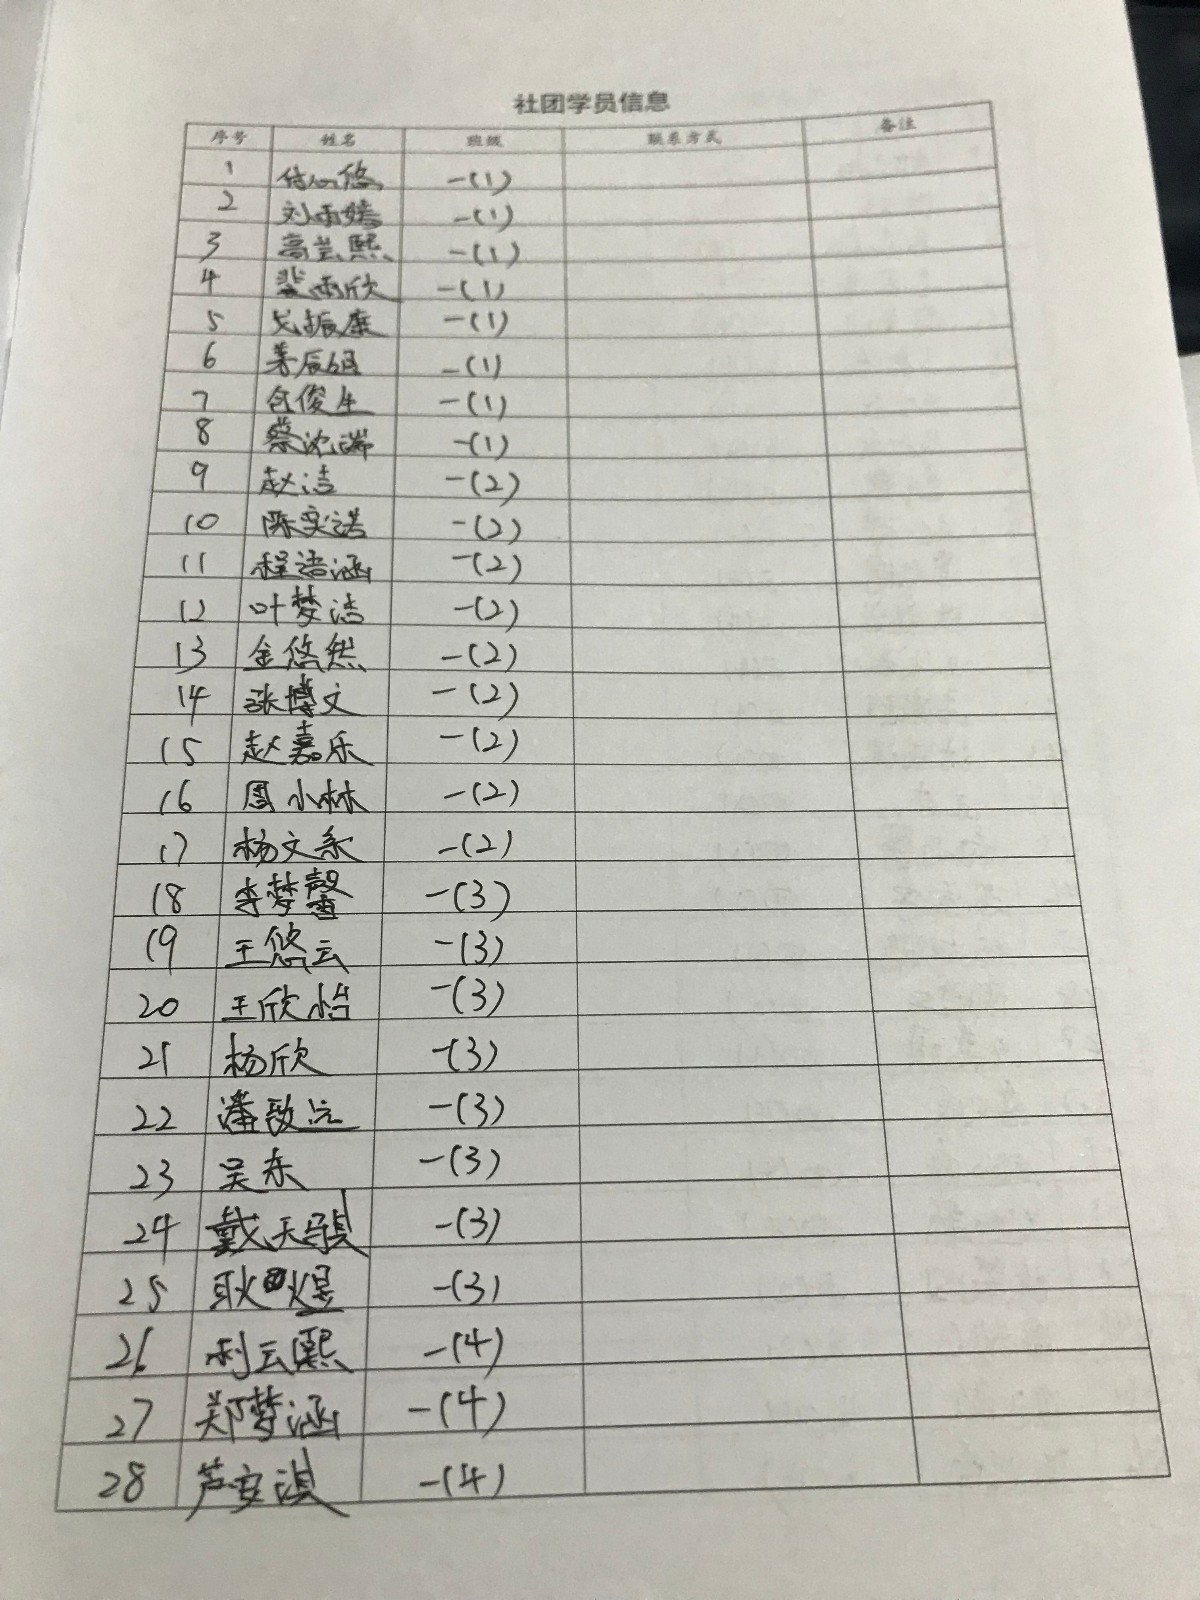 社团学员信息
序号 姓名 班级 联系方式 备注
1 悠 一(1)
2 刘雨嫣 一(1)
3 高芸熙 一(1)
4 雨欣 一(1)
5 戈振康 一(1)
6 辰 一(1)
7 俊生 一(1)
8 蔡沈瑞 一(1)
9 赵洁 一(2)
10 陈奕诺 一(2)
11 程语涵 一(2)
12 叶梦洁 一(2)
13 金悠然 一(2)
14 张博文 一(2)
15 赵嘉乐 一(2)
16 周小林 一(2)
17 杨文 一(2)
18 李梦馨 一(3)
19 王悠云 一(3)
20 王欣怡 一(3)
21 杨欣 一(3)
22 潘致远 一(3)
23 吴东 一(3)
24 戴天骐 一(3)
25 耿煜 一(3)
26 云熙 一(4)
27 郑梦涵 一(4)
28 芦安淇 一(4)